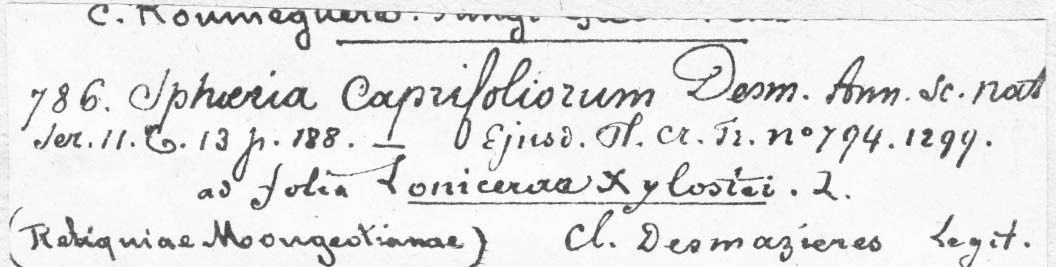 C. Roumeguère. Fungi
786. Sphæria Caprifoliorum Desm. Ann. Sc. nat
Ser. 11. T. 13 p. 188. — Ejusd. Pl. Cr. Fr. no 794. 1299.
ad folia Loniceræ Xylostei. L.
(Reliquiae Moongeotianae) Cl. Desmazieres Legit.